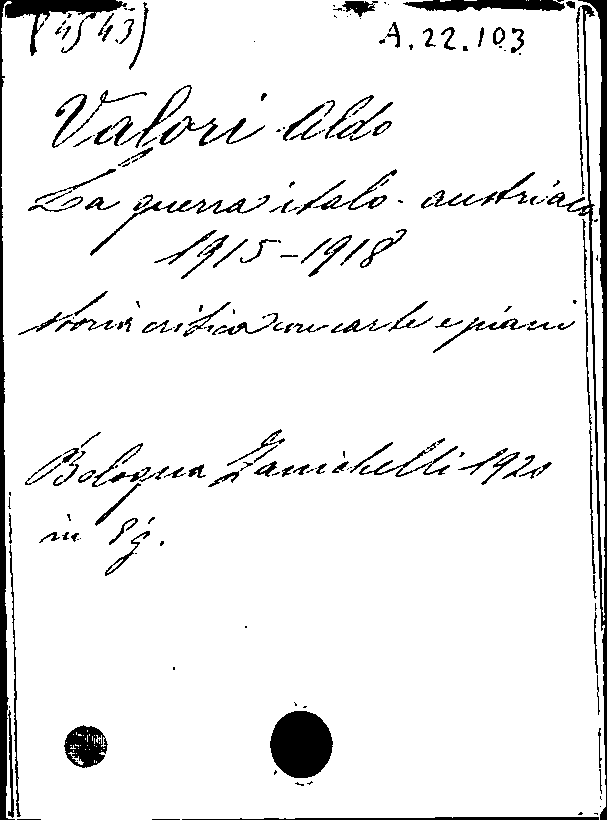 (4543) A.22.103
Valori Aldo
La guerra italo-austriaca
1915-1918
storia critica con carte e piani
Bologna Zanichelli 1920
in 8º g.